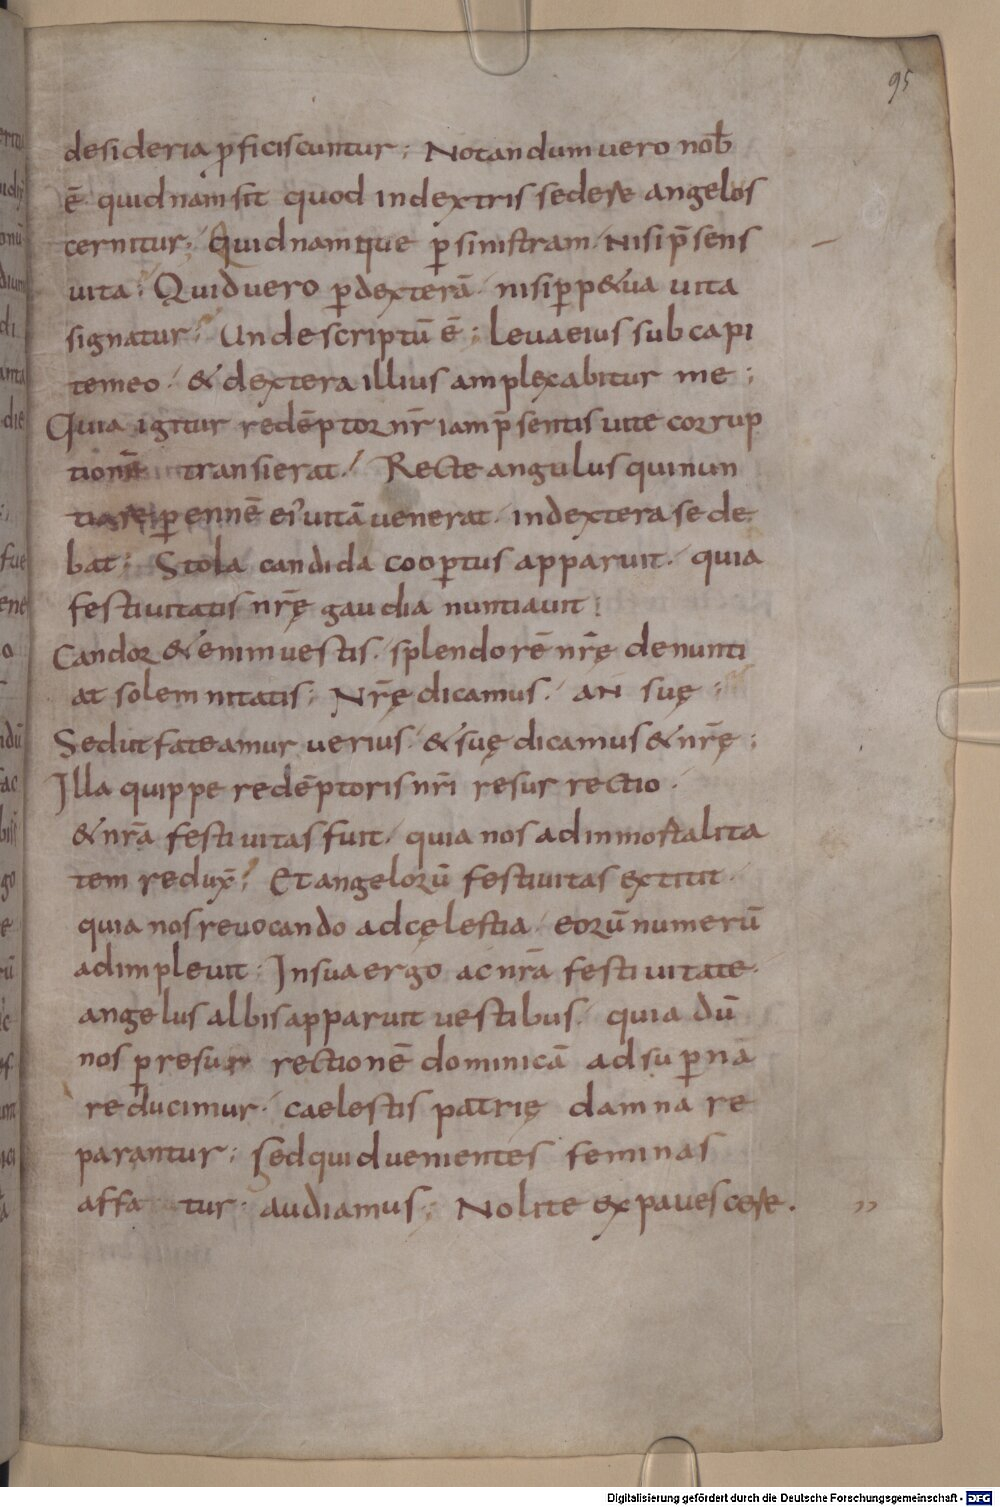 95
desideria ꝑficiscuntur; Notandum vero nob̄
ē quidnam sit quod in dextris sedere angelos
cernitur; Quid namque ꝑ sinistram, nisi p̄sens
vita; Quid vero ꝑ dexterā, nisi ꝑp&ua vita
signatur; Unde scriptū ē; leva eius sub capi
te meo, & dextera illius amplexabitur me;
Quia igitur redēptor nr̄ iam p̄sentis vite corrup
tionē transierat, Recte angulus qui nun
tiare ꝑennē ei' vitā venerat, in dextera sede
bat; Stola candida cooꝑtus apparuit, quia
festivitatis nr̄ę gaudia nuntiavit;
Candor &enim vestis, splendorē nr̄ę denunti
at solemnitatis; Nr̄ę dicamus, an suę;
Sed ut fateamur verius, & suę dicamus & nr̄ę;
Illa quippe redēptoris nr̄i resurrectio,
& nr̄a festivitas fuit, quia nos ad inmortalita
tem redux̄; Et angelorū festivitas extitit,
quia nos revocando ad cęlestia, eorū numerū
adimplevit; In sua ergo ac nr̄a festivitate,
angelus albis apparuit vestibus, quia dū
nos ꝑ resurrectionē dominicā ad suꝑnā
reducimur, caelestis patrię damna re
parantur; sed quid venientes feminas
affa tur, audiamus; Nolite expavescere. ,,
Digitalisierung gefördert durch die Deutsche Forschungsgemeinschaft - DFG